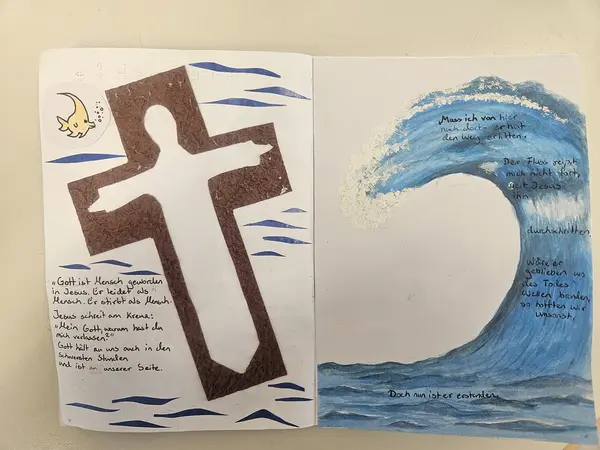 "Gott ist Mensch geworden
in Jesus. Er leidet als
Mensch. Er stirbt als Mensch.
Jesus schreit am Kreuz:
"Mein Gott, warum hast du
mich verlassen?"
Gott hält zu uns auch in den
schwersten Stunden
und ist an unserer Seite.
Muss ich von hier
nach dort - er hat
den Weg erlitten.
Der Fluss reißt
mich nicht fort,
seit Jesus
ihn
durchschritten.
Wäre er
geblieben wo
des Todes
Wellen branden,
so hofften wir
umsonst.
Doch nun ist er erstanden.